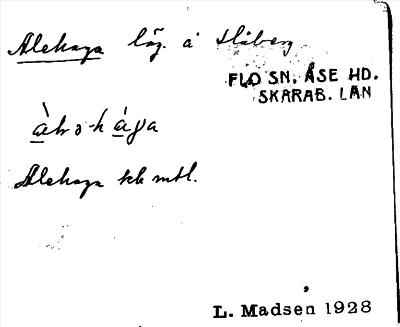 Alehaga läg. å Håberg
FLO SN. ÅSE HD.
SKARAB. LÄN
Alehaga kb mtl.
L. Madsen 1928